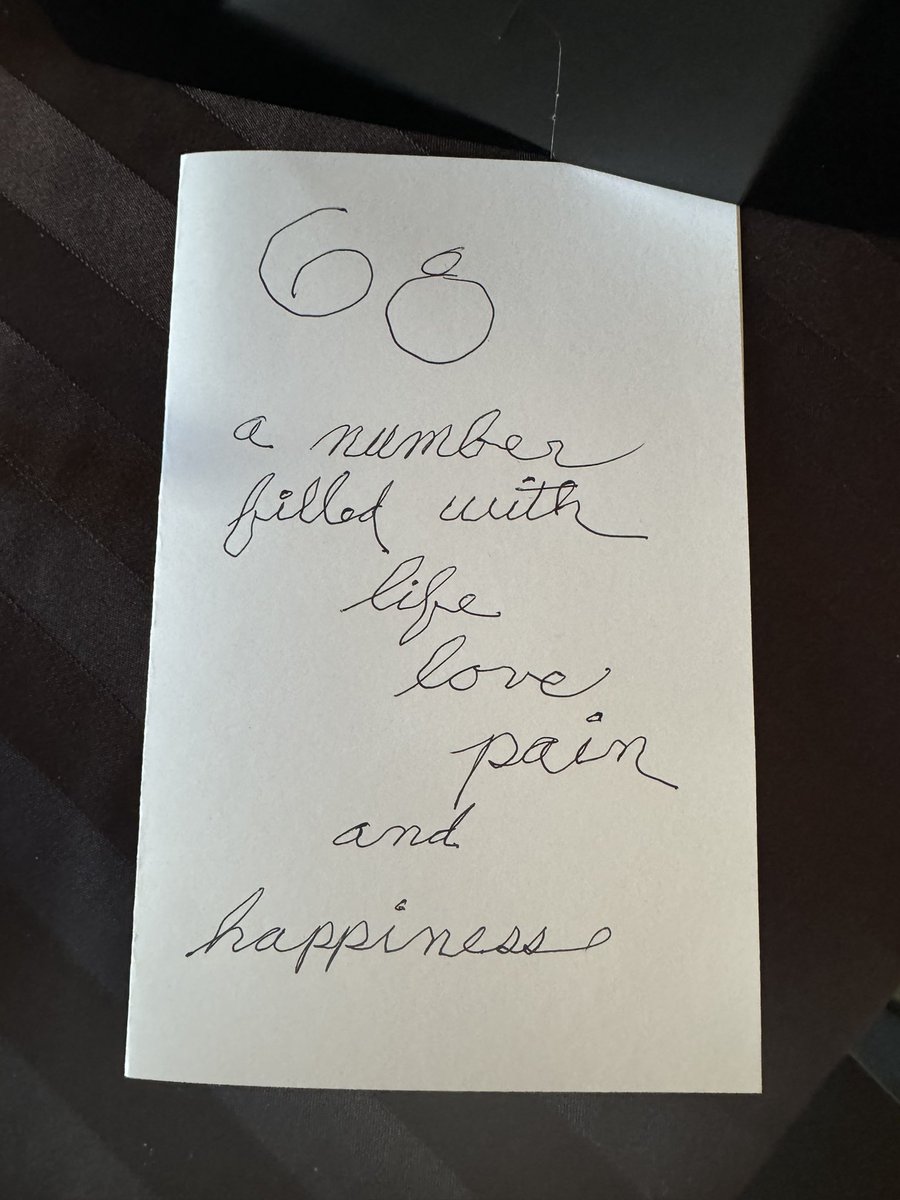 68
a number
filled with
life
love
pain
and
happiness